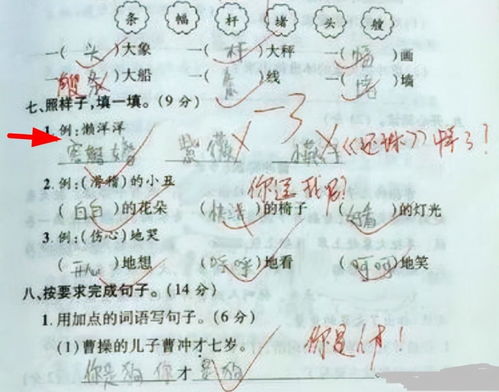 条 幅 杆 堵 头 艘
一(头)大象 一(杆)大秤 一(幅)画
一(艘)大船 一(条)线 一(堵)墙
七、照样子,填一填。(9分) 一3
1. 例:懒洋洋
紫薇 《还珠》看多了?
2. 例:(滑稽)的小丑 你逗我呢?
(白白)的花朵 ()的椅子 ()的灯光
3. 例:(伤心)地哭
(开心)地想 ()地看 (呵呵)地笑
八、按要求完成句子。(14分)
1. 用加点的词语写句子。(6分)
(1)曹操的儿子曹冲才七岁。 你是人才!
你是狗 你才是狗